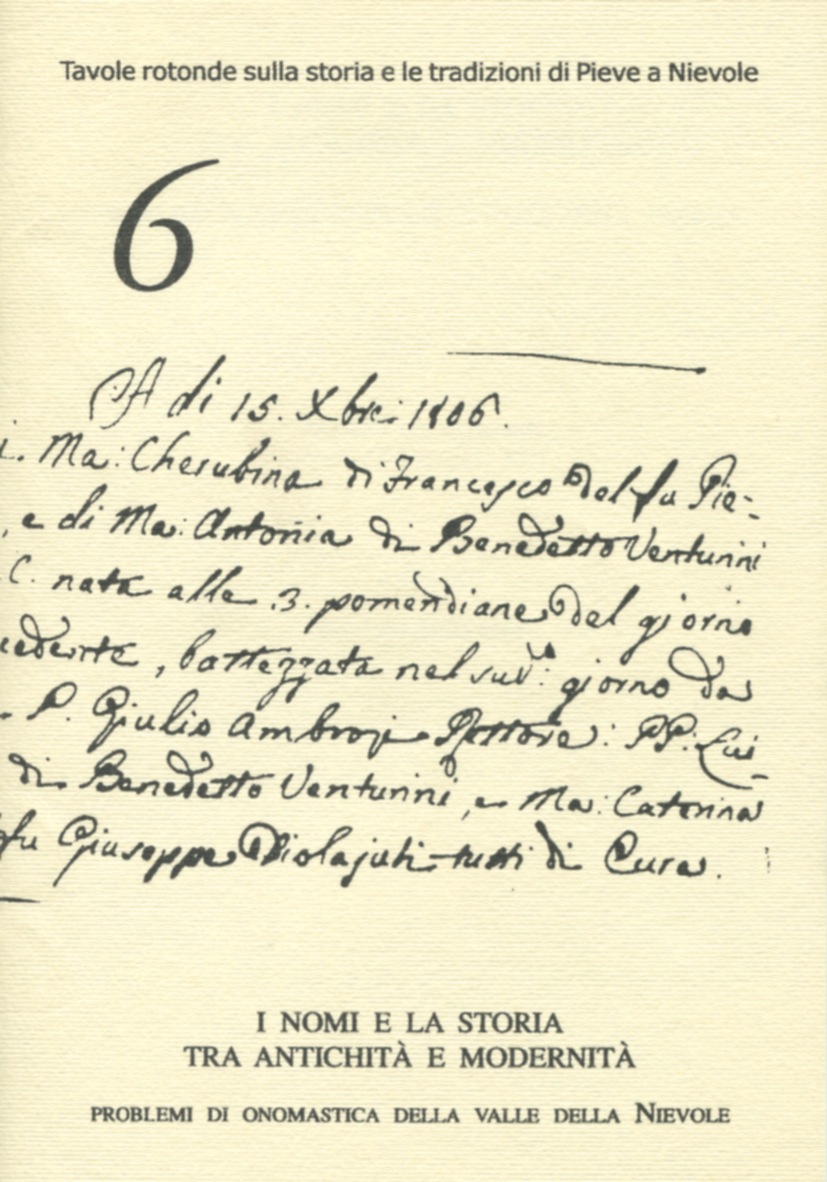 Tavole rotonde sulla storia e le tradizioni di Pieve a Nievole
6
A di 15. Xbre: 1806.
Ma: Cherubina di Francesco del fu Pie-
, e di Ma: Antonia di Benedetto Venturini
C. nata alle .3. pomeridiane del giorno
, battezzata nel sud: giorno da
P. Giulio Ambrogi Rettore: PP: Lui-
di Benedetto Venturini, e Ma: Caterina
fu Giuseppe tutti di Cura.
I NOMI E LA STORIA
TRA ANTICHITÀ E MODERNITÀ
PROBLEMI DI ONOMASTICA DELLA VALLE DELLA NIEVOLE